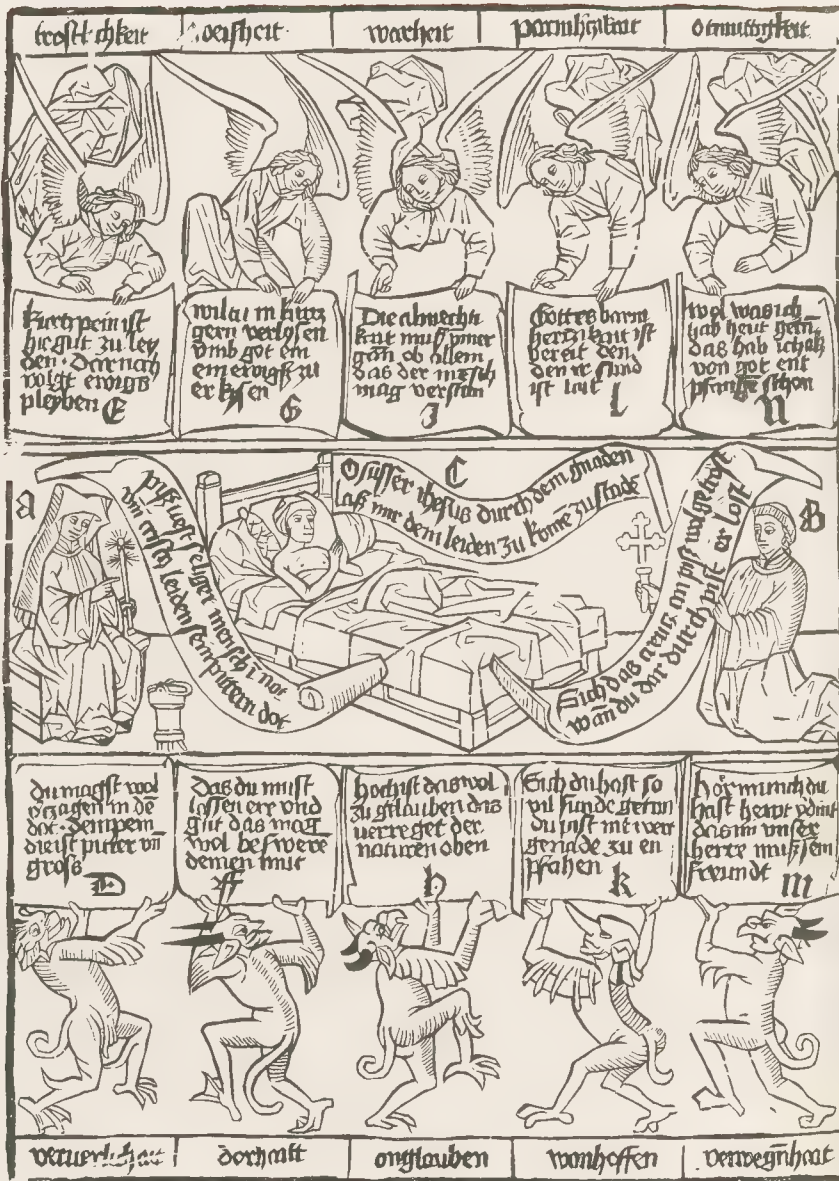 trostlichkeit
weisheit
warheit
parmh'czikait
otmuttigkeit
kurcz pein ist
hie gut zu ley
den · dar nach
volgt ewigs
pleyben E
wiltu in kurcz
gern verlysen
vmb got ein
ein ewigß zu
er kysen G
Die almechti
kait muß ymer
gan ob allem
das der mēsch
mag verstan
J
Gottes barm
herczikait ist
bereit den
den ir sund
ist lait L
wol was ich
hab heut getn̄
das hab ich als
von got ent
pfangē schon
N
A
piß vest seliger mensch ī not
vm̄ cristus leiden sein pittern dot
C
O süsser ihesus durch dein gnaden
laß mir dein leiden zu komē zu stade
Sich das creutz an piß wol getrost
wan̄ du dar durch pist er lost
B
du magst wol
v'czagen in dē
dot · dein pein
die ist pitter vn̄
gross D
Das du must
lassen err vnd
gut das mag
wol beswere
deinen mut
ff
hoch ist das wol
zu glauben das
verreget der
naturen oben
h
Sich du hast so
vil sunde getan
du pist nit wert
genade zu en
pfahen k
hör munich du
hast hewt v'dint
das im vnser
herre muß sein
frewndt m
dorhaitt
onglauben
wonhoffen
verwegn̄haat